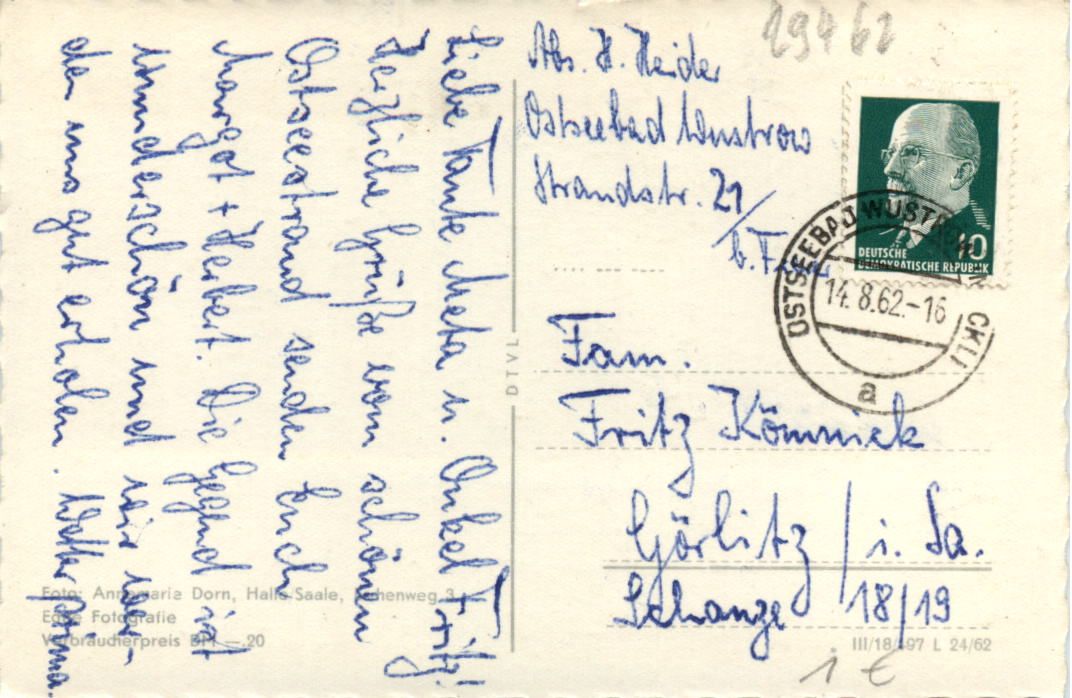 Liebe Tante Meta u. Onkel Fritz!
Herzliche Grüße vom schönen
Ostseestrand senden Euch
Margot + Herbert. Die Gegend ist
wunderschön und wir wer-
den uns gut erholen. Wetter prima.
29462
Abs. H. Heider
Ostseebad Wustrow
Strandstr. 21/
b. 
DEUTSCHE
DEMOKRATISCHE REPUBLIK
10
OSTSEEBAD WUSTROW
14.8.62.-16
a
DTVL
Fam.
Fritz Kömmek
Görlitz / i. Sa.
Schanze 18/19
Foto: Annemaria Dorn, Halle/Saale,
Echte Fotografie
Verbraucherpreis DM —.20
III/18/197 L 24/62
1 €